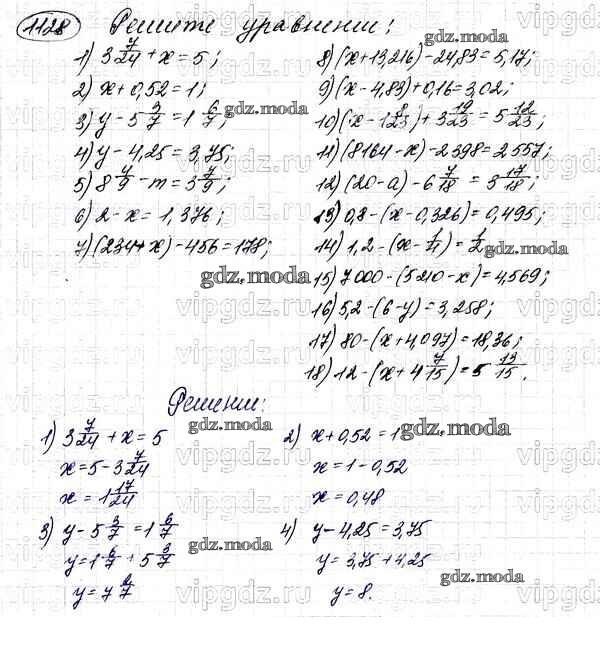 1128 Решите уравнении:
1) 3 7/24 + x = 5;
2) x + 0,52 = 1;
3) y - 5 3/7 = 1 6/7;
4) y - 4,25 = 3,75;
5) 8 4/9 - m = 3 7/9;
6) 2 - x = 1,376;
7) (234 + x) - 456 = 178;
8) (x + 13,216) - 24,83 = 5,17;
9) (x - 4,83) + 0,16 = 3,02;
10) (x - 1 8/23) + 3 19/23 = 5 12/23;
11) (8164 - x) - 2398 = 2557;
12) (20 - a) - 6 7/18 = 3 17/18;
13) 0,8 - (x - 0,326) = 0,495;
14) 1,2 - (x - 1/4) = 1/2
15) 7000 - (5210 - x) = 4,569;
16) 5,2 - (6 - y) = 3,258;
17) 80 - (x + 4,097) = 18,36;
18) 12 - (x + 4 7/15) = 5 13/15.
Решении:
1) 3 7/24 + x = 5
x = 5 - 3 7/24
x = 1 17/24
2) x + 0,52 = 1
x = 1 - 0,52
x = 0,48
3) y - 5 3/7 = 1 6/7
y = 1 6/7 + 5 3/7
y = 7 2/7
4) y - 4,25 = 3,75
y = 3,75 + 4,25
y = 8.
gdz.moda
vipgdz.com